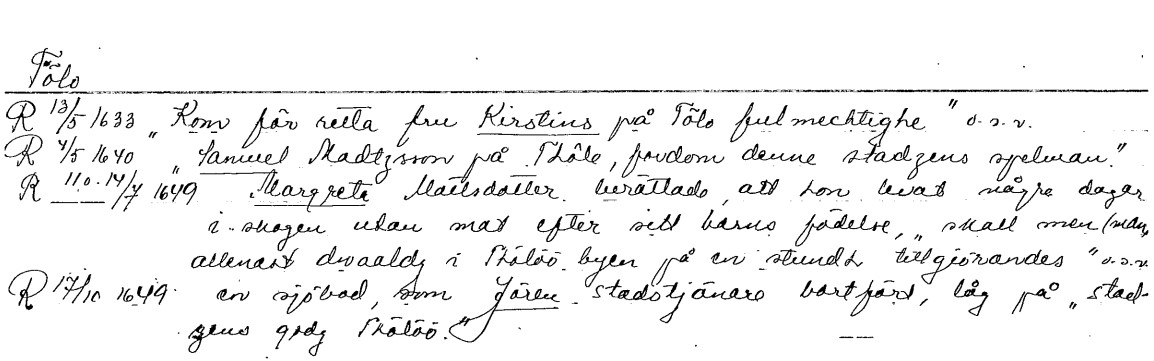 Tölo
R 13/5 1633 „Kom för retta fru Kirstins på Tölo fulmechtighe" o.s.v.
R 4/5 1640 „Samuel Madtzsson på Thöle, fordom denne stadzens spelman."
R 11 o. 14/7 1649 Margreta Mattsdotter berättade, att hon levat några dagar
i skogen utan mat efter sitt barns födelse, „skall men (man,
allenast dwaaldz i Thölöö byen på en stundh tillgiörandes" o.s.v.
R 17/10 1649. en sjöbod, som Jören stadstjänare bortfört, låg på „stad-
zens godz Thölöö."